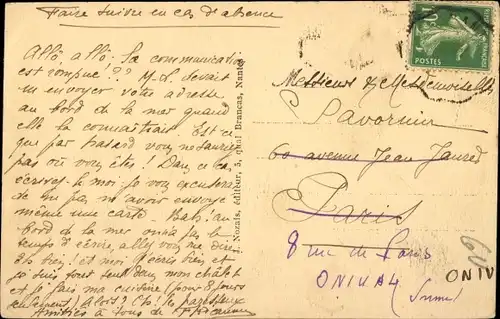 Faire suivre en cas d'absence
Allô, allô. La communication
est rompue!?? M.L. devait
m'envoyer votre adresse
au bord de la mer quand
elle la connaîtrait. Est-ce
que par hasard vous ne sauriez
pas où vous êtes! Dans ce cas
écrivez-le moi je vous excuserai
de ne pas m'avoir envoyé
même une carte. Bah! au
bord de la mer on n'a pas le
temps d'écrire, allez-vous me dire.
Eh bien! et moi j'écris bien et
je suis tout seul dans mon châlet
et je fais ma cuisine (pour 8 jours
seulement) Alors? Ets! les paresseux
Amitiés à tous de
Nozais, éditeur, 5, quai Brancas, Nantes
POSTES
Messieurs & Mesdemoiselles
Savornin
60 avenue Jean Jaurès
Paris
8 rue de Paris
ONIVAL
(Somme)
ONIV